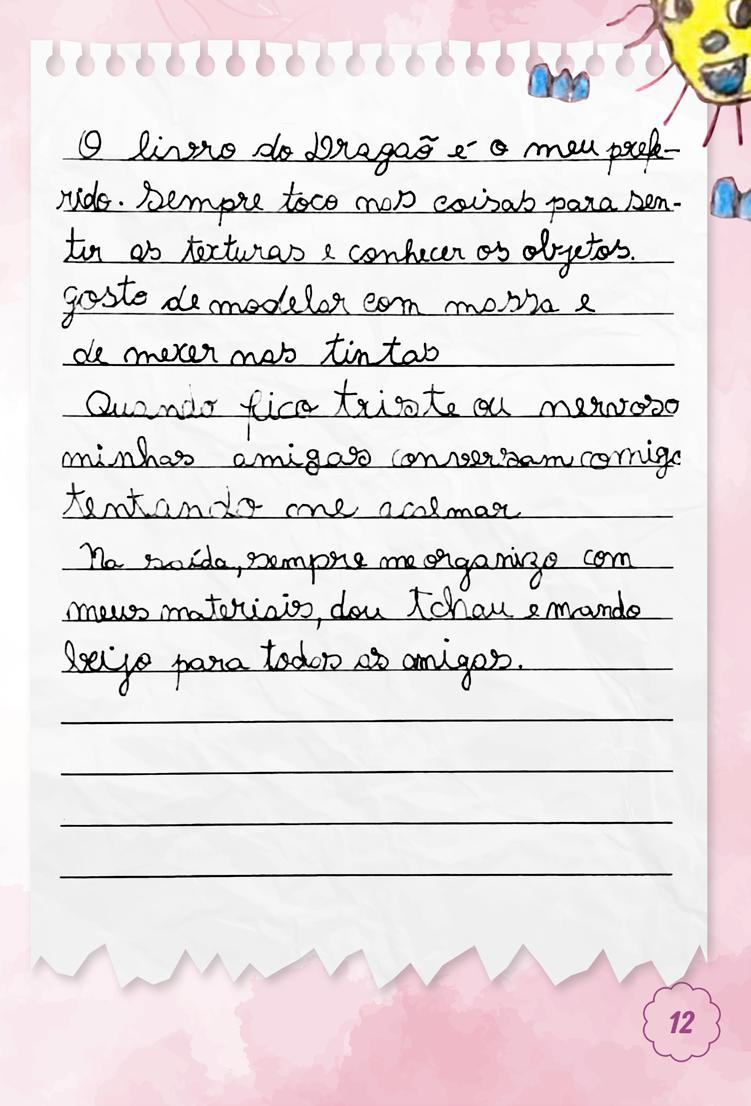 O livro do Dragaõ é o meu prefe-
rido. Sempre toco nas coisas para sen-
tir as texturas e conhecer os objetos.
gosto de modelar com massa e
de mexer nas tintas
Quando fico triste ou nervoso
minhas amigas conversam comigo
tentando me acalmar
Na saída, sempre me organizo com
meus materiais, dou Tchau e mando
beijo para todas as amigas.
12